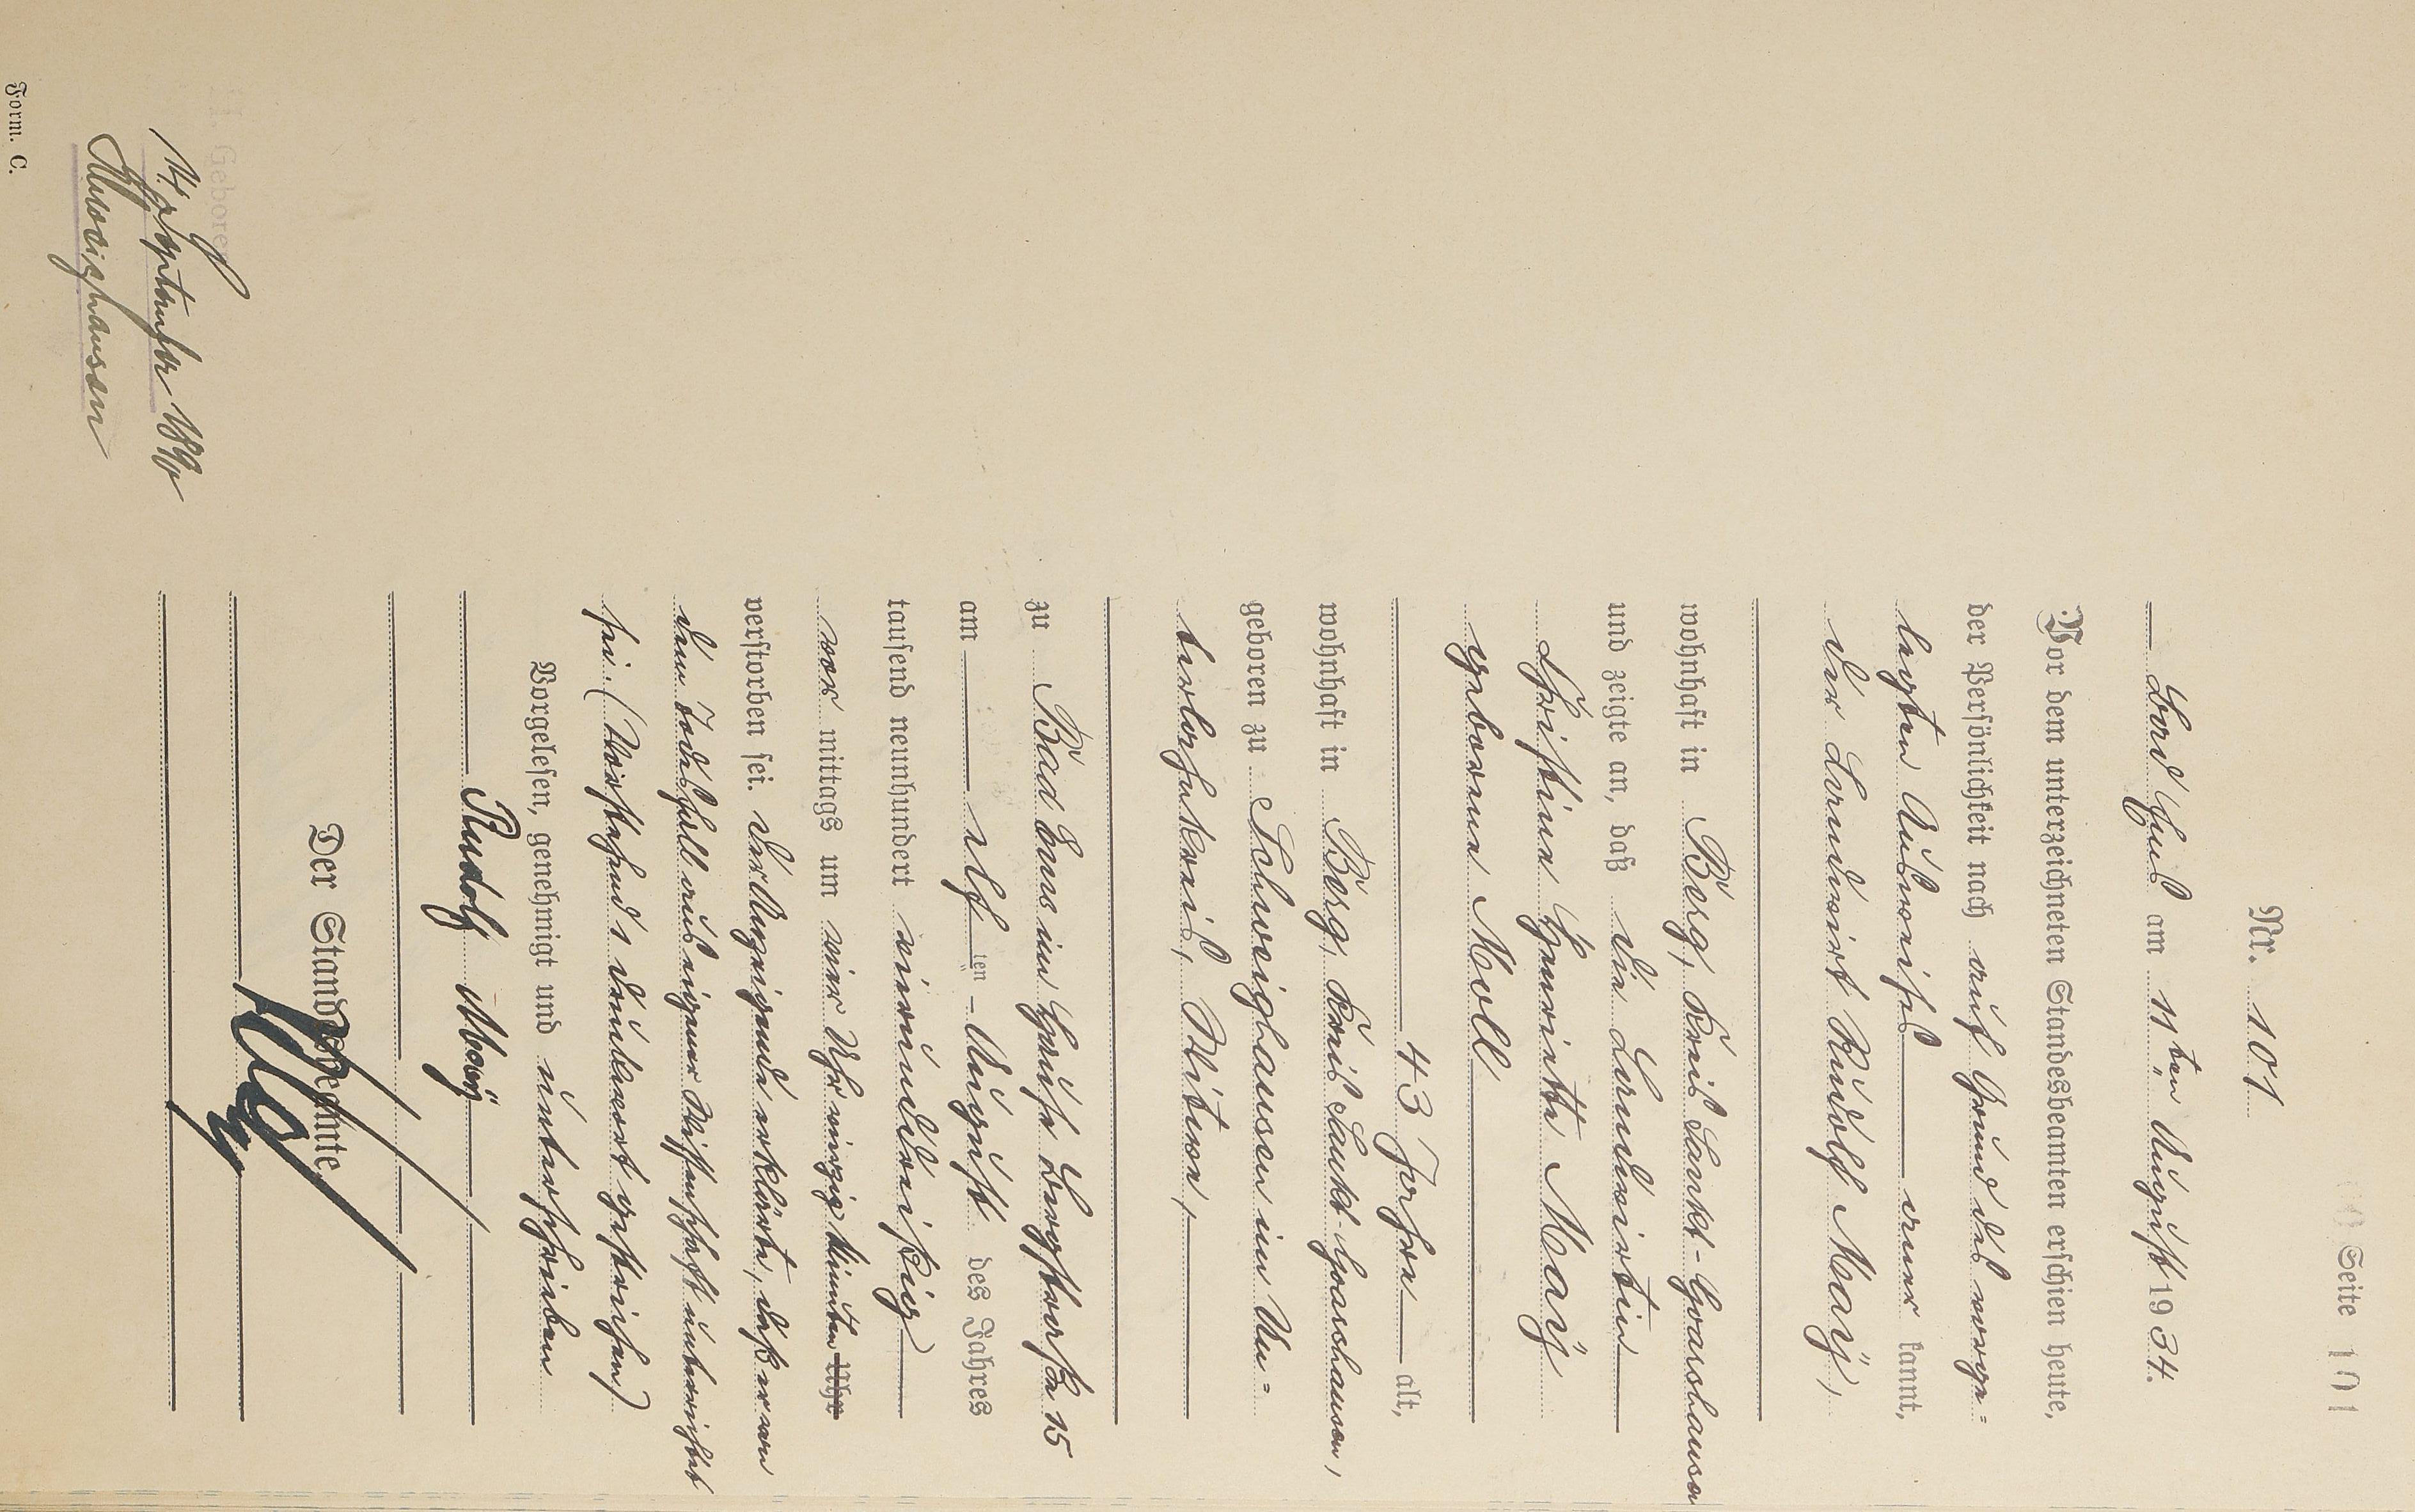 Seite 101
Nr. 101
Bad Ems am 11ten August 1934.
Vor dem unterzeichneten Standesbeamten erschien heute,
der Persönlichkeit nach auf Grund des vorge=
legten Ausweises aner kannt,
der Landwirt Rudolf Maÿ,
wohnhaft in Berg, Kreis Sankt-Goarshausen
und zeigte an, daß die Landwirtin
Christine Henriette Maÿ
geborene Moll
43 Jahre alt,
wohnhaft in Berg, Kreis Sankt-Goarshausen,
geboren zu Schweighausen im Un=
terlahnkreis, Witwe,
zu Bad Ems im Hause Bergstraße 15
am elf ten August des Jahres
tausend neunhundert vierunddreißig
vor mittags um vier Uhr einzig Minuten Uhr
verstorben sei. Der Anzeigende erklärte, daß er von
dem Todesfall aus eigener Wissenschaft unterrichtet
sei. (Vorstehend 1 Druckwort gestrichen)
Vorgelesen, genehmigt und unterschrieben
Rudolf Maÿ
Der Standesbeamte.
Geboren
14. September 1890
Schweighausen
Form. C.